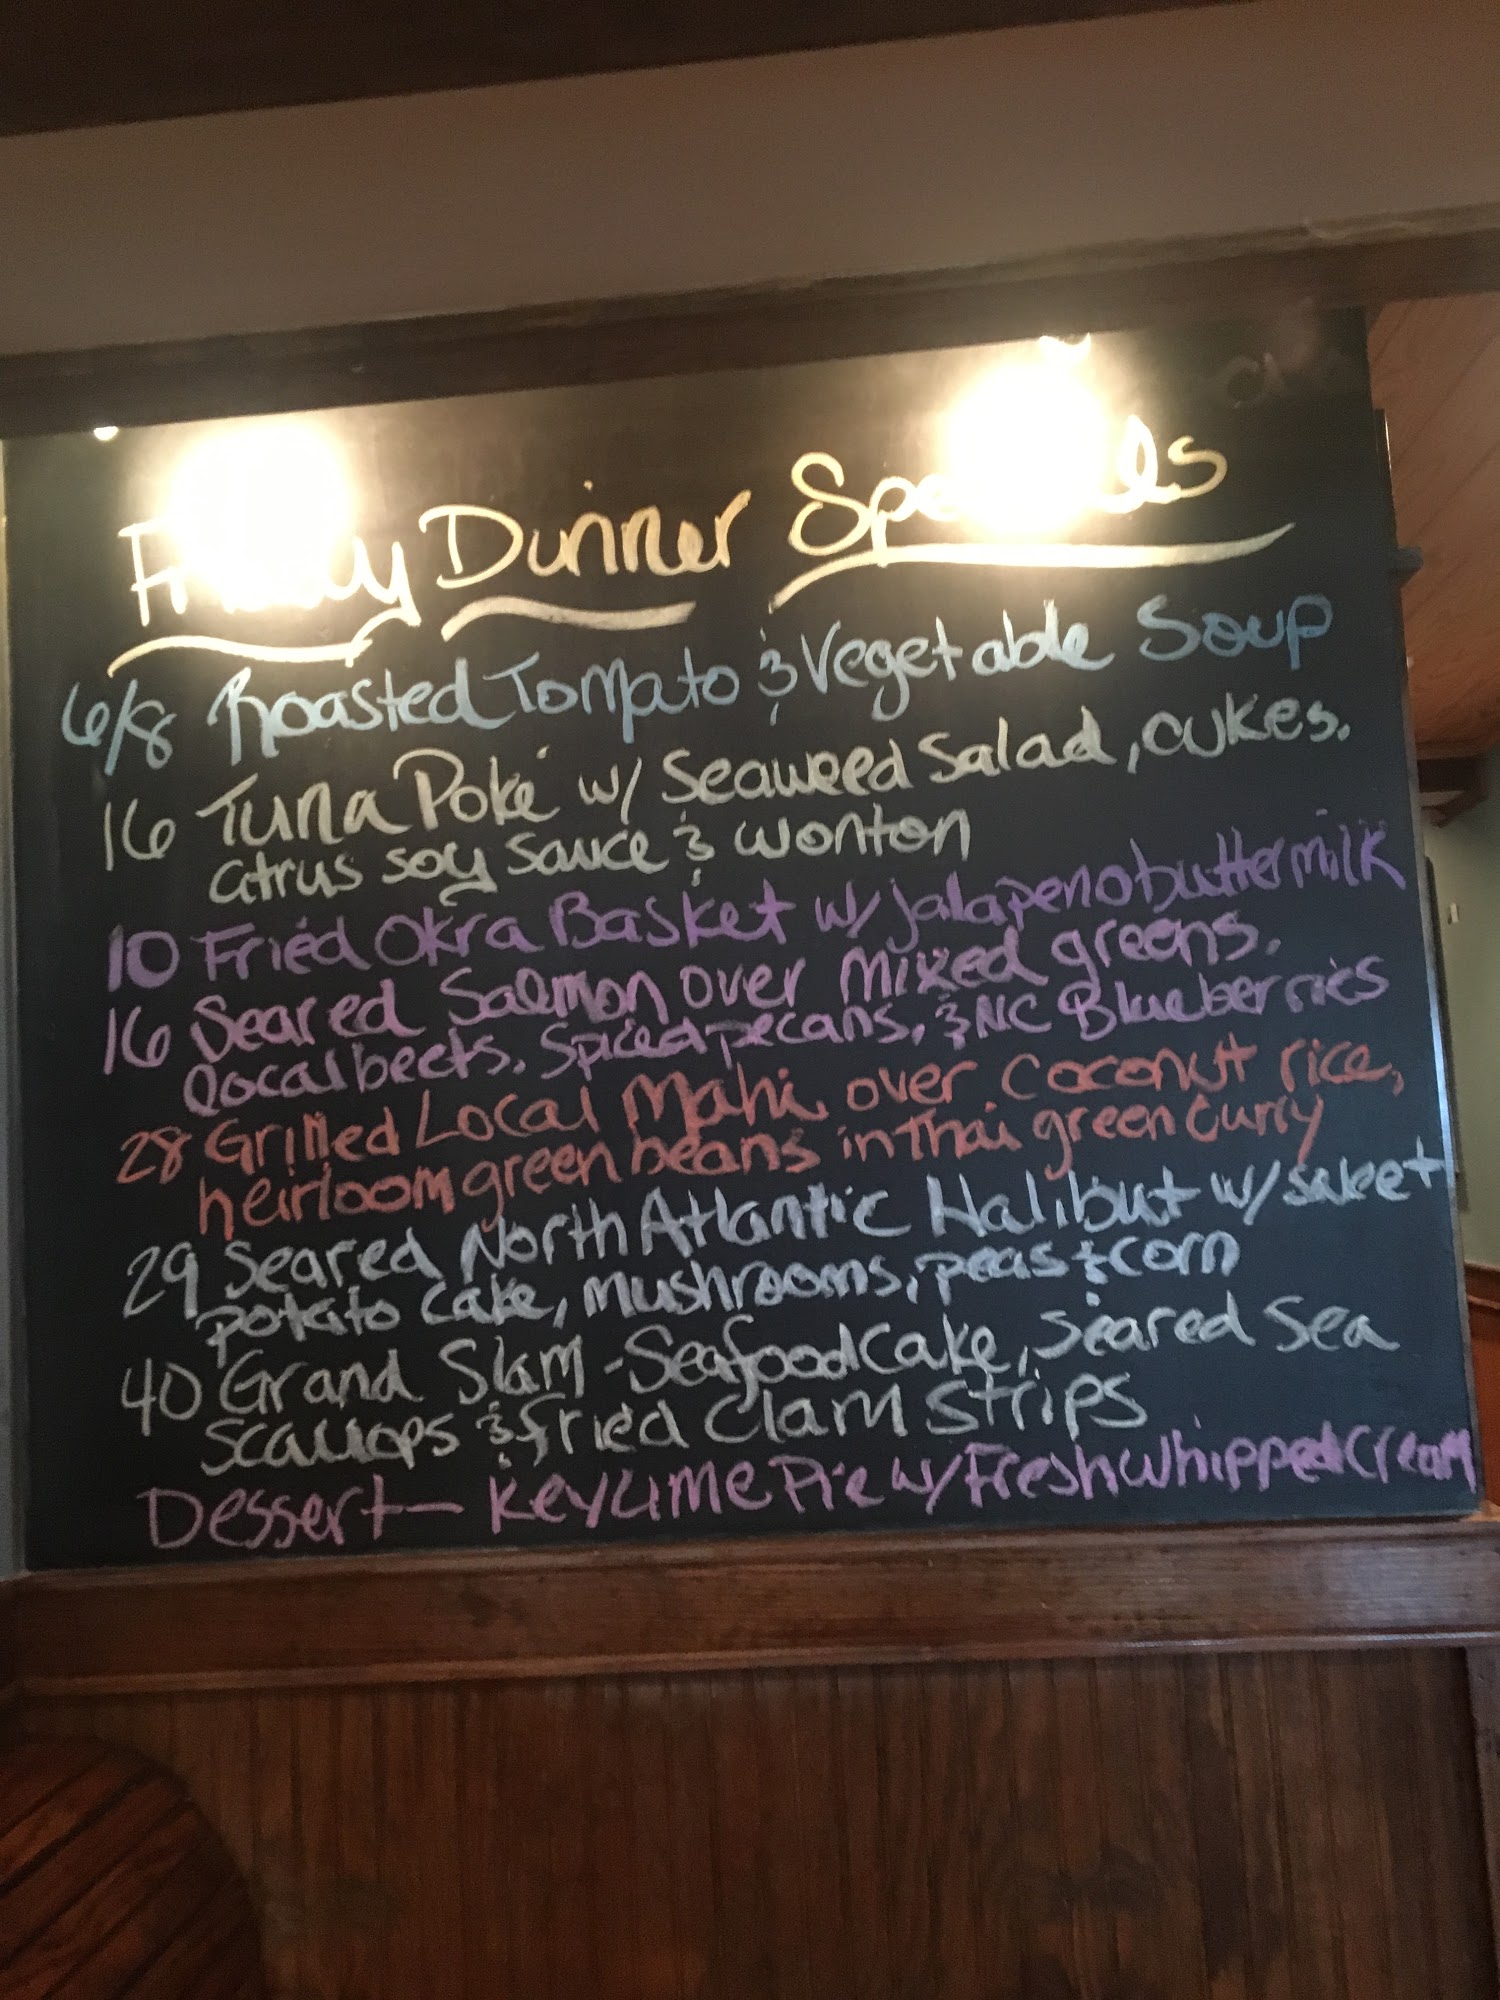 Friday Dinner Specials
6/8 Roasted Tomato & Vegetable Soup
16 Tuna Poké w/ Seaweed Salad, cukes.
citrus soy sauce & wonton
10 Fried Okra Basket w/ jalapeno buttermilk
16 Seared Salmon over mixed greens.
local beets. spiced pecans, & NC Blueberries
28 Grilled Local Mahi over coconut rice,
heirloom green beans in Thai green curry
29 Seared North Atlantic Halibut w/ sweet
potato cake, mushrooms, peas & corn
40 Grand Slam - Seafood Cake, Seared Sea
scallops & fried Clam Strips
Dessert - Key Lime Pie w/ Fresh Whipped Cream